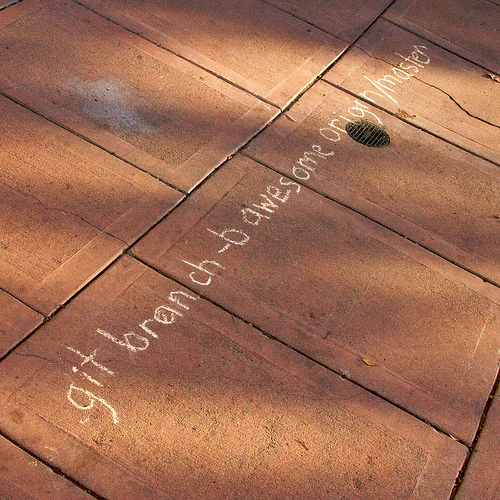 git branch -b awesome origin/master